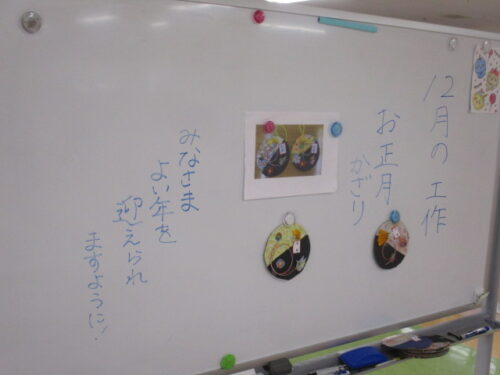 12月の工作
お正月
かざり
みなさま
よい年を
迎えられ
ますように!